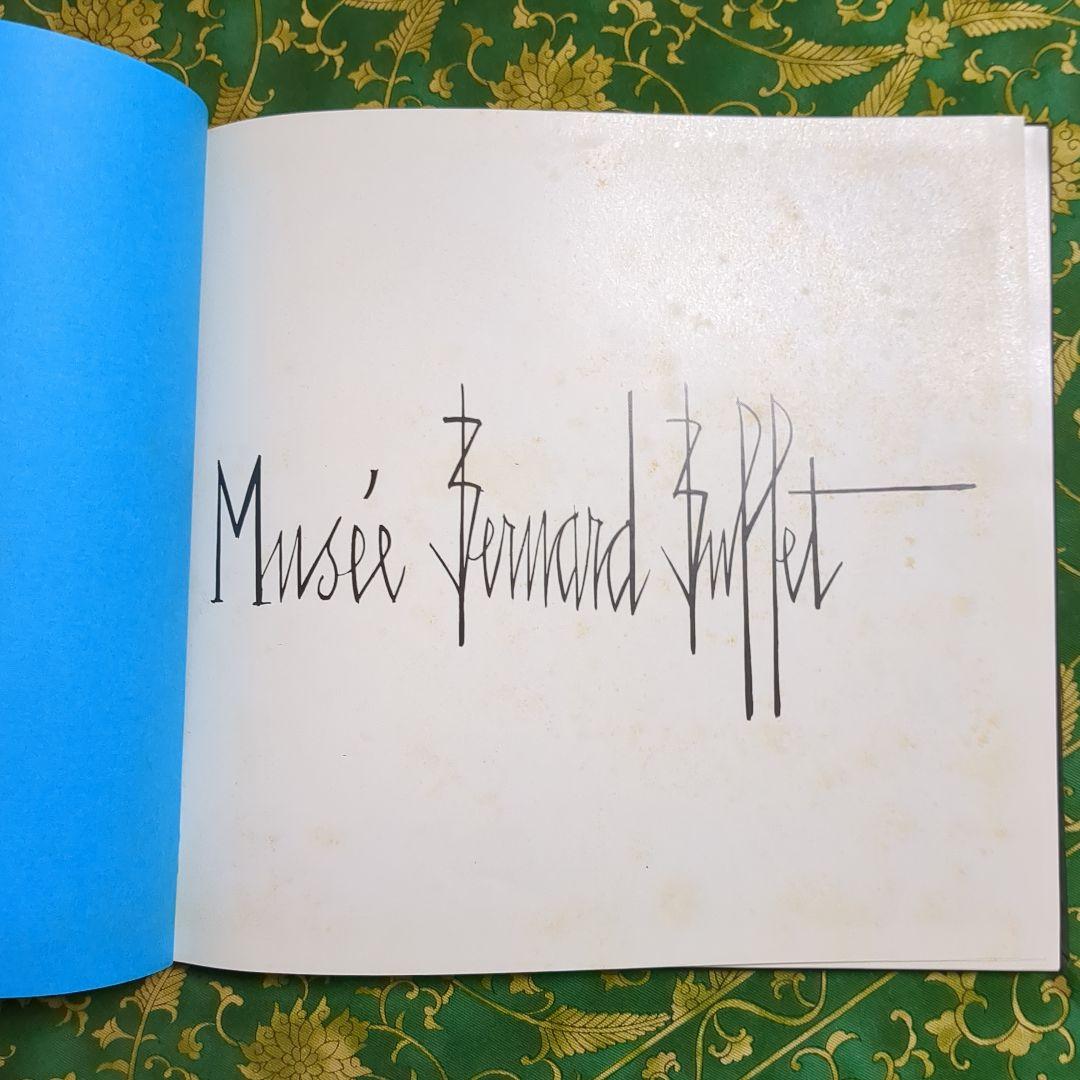 Musée Bernard Buffet